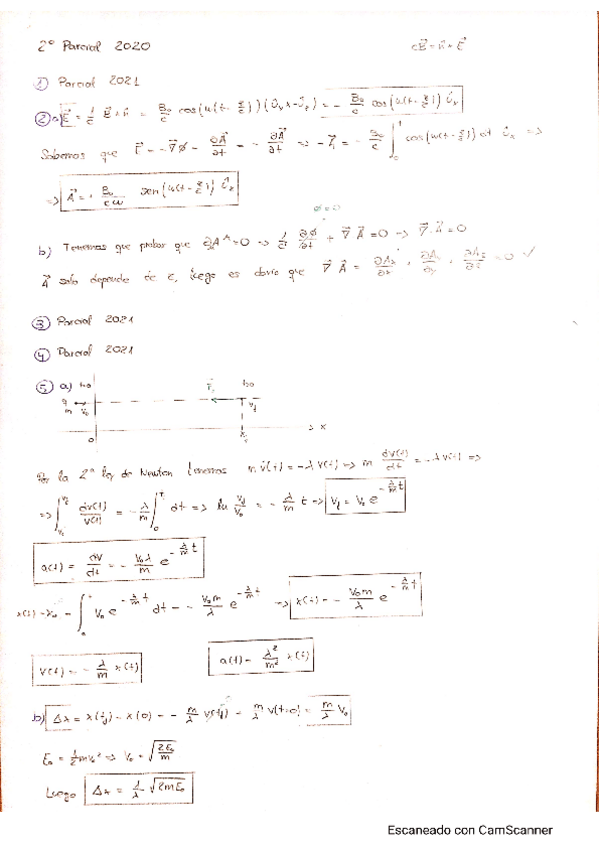 2º Parcial 2020
cB⃗ = n̂ × E⃗
① Parcial 2021
② a) E⃗ = 1/c B⃗ × n̂ = B₀/c cos(ω(t - z/c)) (Û_y × -Û_z) = - B₀/c cos(ω(t - z/c)) Û_x
Sabemos que E⃗ = -∇⃗φ - ∂A⃗/∂t = - ∂A⃗/∂t => -A⃗ = - B₀/c ∫₀ᵗ cos(ω(t - z/c)) dt Û_x =>
=> A⃗ = + B₀/cω sen(ω(t - z/c)) Û_x
φ=0
b) Tenemos que probar que ∂A^μ = 0 => 1/c² ∂φ/∂t + ∇⃗A⃗ = 0 -> ∇⃗·A⃗ = 0
A⃗ solo depende de z, luego es obvio que ∇⃗A⃗ = ∂Aₓ/∂x + ∂A_y/∂y + ∂A_z/∂z = 0 ✓
③ Parcial 2021
④ Parcial 2021
⑤ a)
q
m
v₀
v_f
x_f
0
x
Por la 2ª ley de Newton tenemos m v̇(t) = -λ v(t) => m dv(t)/dt = -λ v(t) =>
=> ∫ dv(t)/v(t) = - λ/m ∫₀ᵗ dt => ln v_f/v₀ = - λ/m t => v_f = v₀ e^(-λ/m t)
a(t) = dv/dt = - v₀λ/m e^(-λ/m t)
x(t) - x₀ = ∫ v₀ e^(-λ/m t) dt = - v₀m/λ e^(-λ/m t) => x(t) = - v₀m/λ e^(-λ/m t)
v(t) = - λ/m x(t)
a(t) = λ²/m² x(t)
b) Δx = x(t_f) - x(0) = - m/λ v(t_f) - m/λ v(t=0) = m/λ v₀
E₀ = ½mv₀² => v₀ = √(2E₀/m)
Luego Δx = 1/λ √(2mE₀)
Escaneado con CamScanner